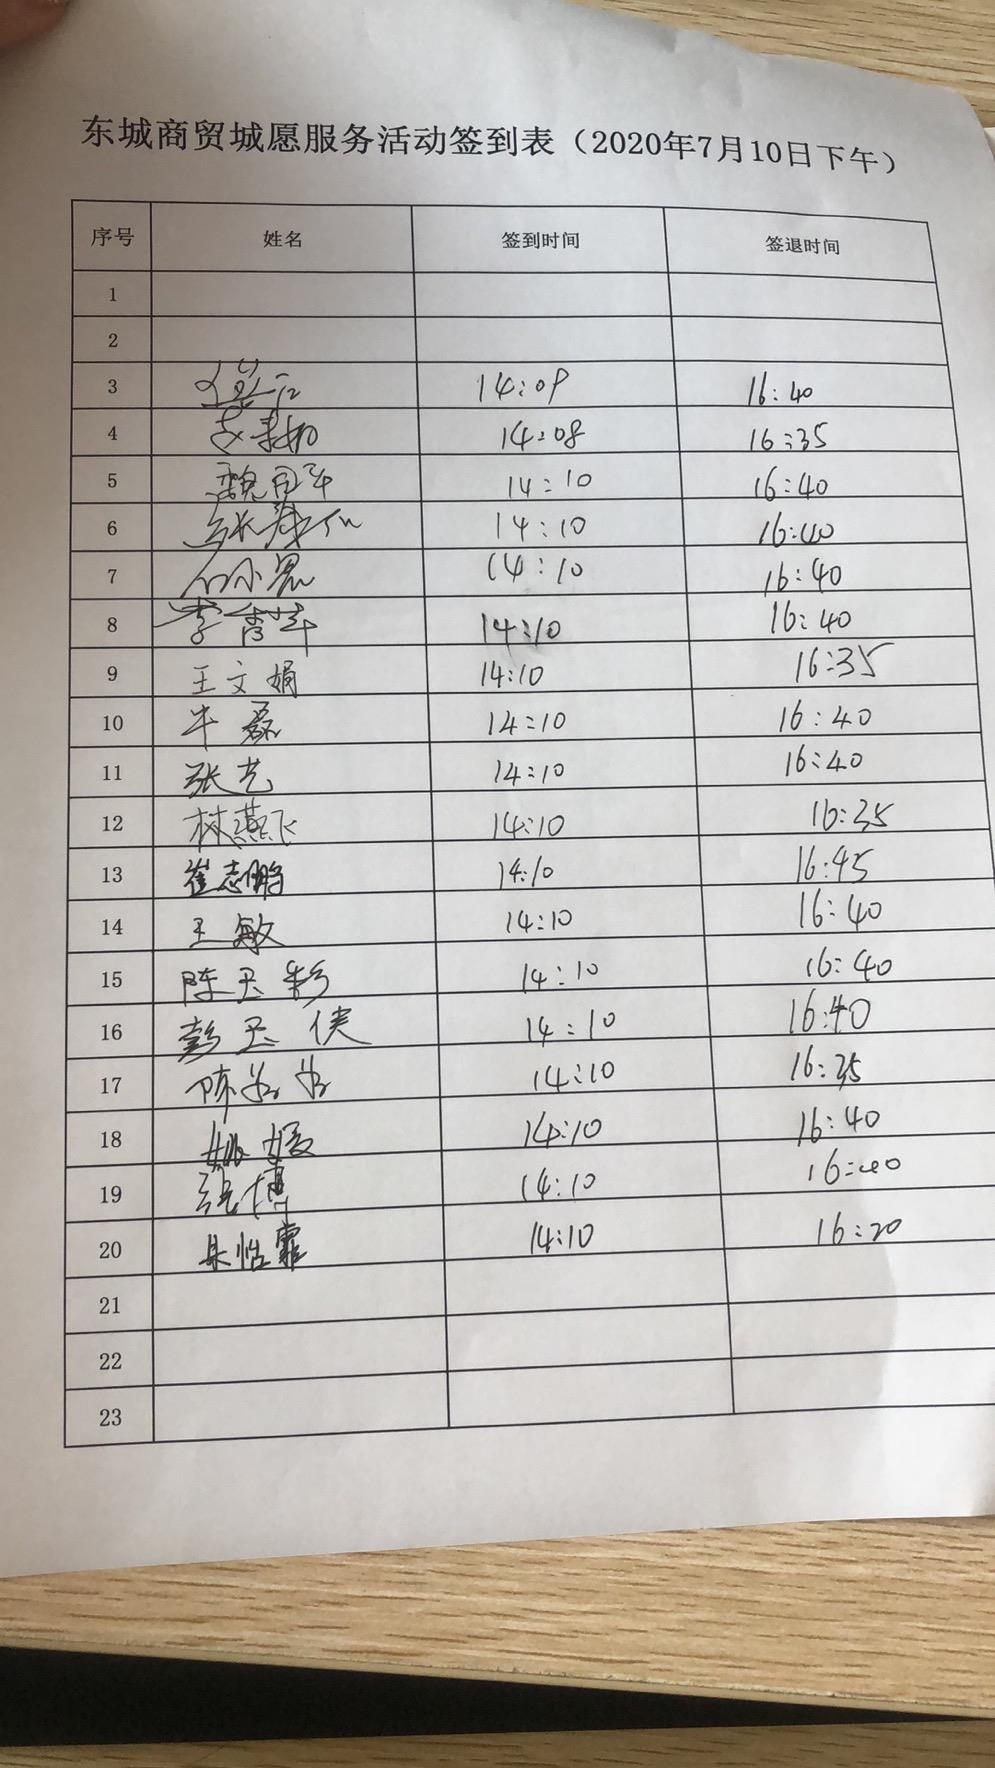 东城商贸城愿服务活动签到表（2020年7月10日下午）
序号 姓名 签到时间 签退时间
1
2
3 14:09 16:40
4 14:08 16:35
5 14:10 16:40
6 14:10 16:40
7 14:10 16:40
8 李青华 14:10 16:40
9 王文娟 14:10 16:35
10 牛磊 14:10 16:40
11 张艺 14:10 16:40
12 林燕飞 14:10 16:35
13 崔志鹏 14:10 16:45
14 王敏 14:10 16:40
15 陈玉彩 14:10 16:40
16 彭玉侠 14:10 16:40
17 陈 14:10 16:35
18 姚媛 14:10 16:40
19 张博 14:10 16:40
20 朱怡霏 14:10 16:20
21
22
23